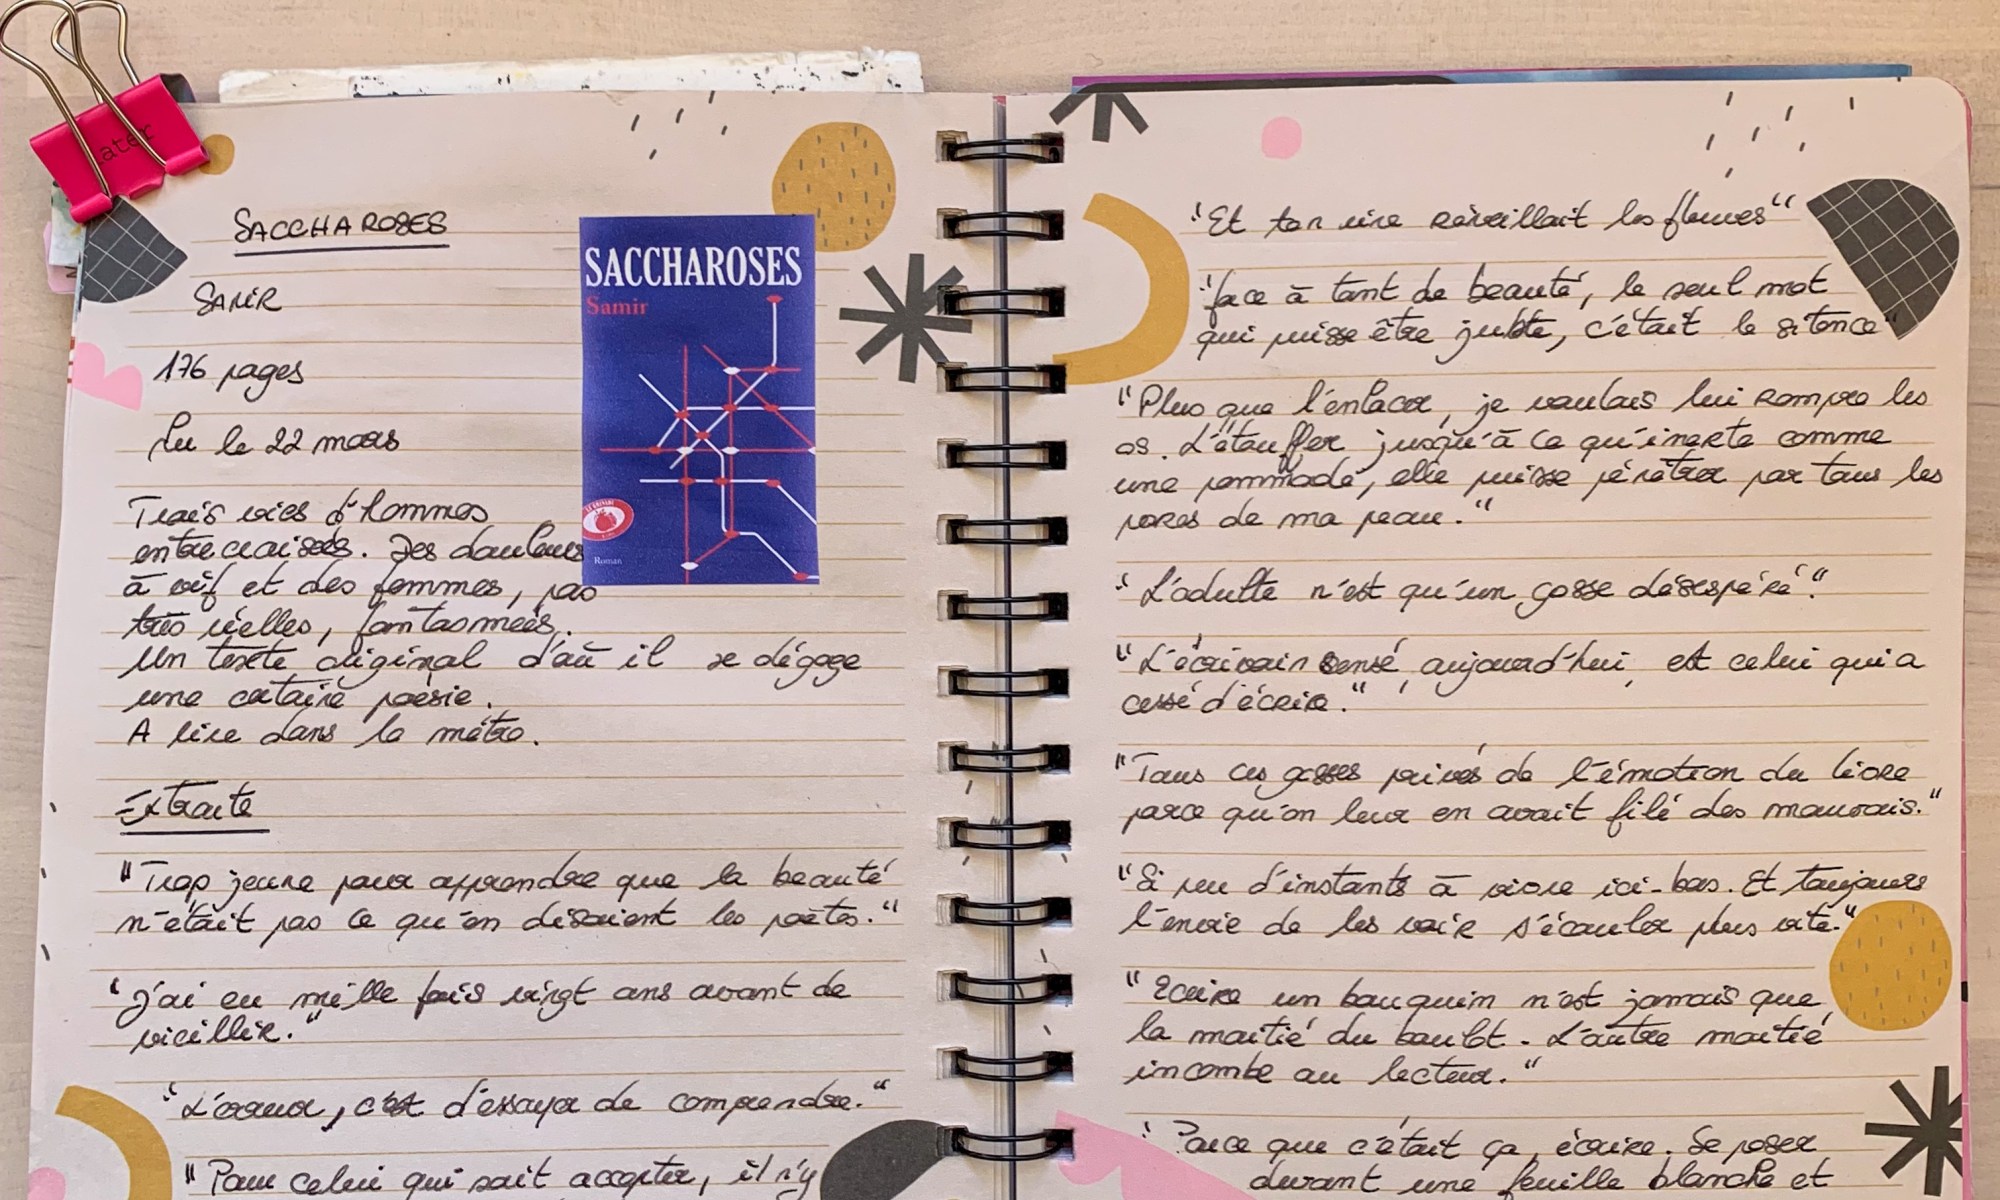 later
SACCHAROSES
SAMIR
176 pages
Lu le 22 mars
Trois vies d'hommes
entrecroisées. Des douleurs
à vif et des femmes, pas
très réelles, fantasmées.
Un texte original d'où il se dégage
une certaine poésie.
A lire dans le métro.
Extraits
"Trop jeune pour apprendre que la beauté
n'était pas ce qu'en disaient les poètes."
"J'ai eu mille fois vingt ans avant de
vieillir."
"L'erreur, c'est d'essayer de comprendre."
"Pour celui qui sait accepter, il n'y
SACCHAROSES
Samir
Roman
"Et ton rire réveillait les fleuves"
"face à tant de beauté, le seul mot
qui puisse être juste, c'était le silence"
"Plus que l'enlacer, je voulais lui rompre les
os. L'étouffer jusqu'à ce qu'inerte comme
une pommade, elle puisse pénétrer par tous les
pores de ma peau."
"L'adulte n'est qu'un gosse désespéré."
"L'écrivain sensé, aujourd'hui, est celui qui a
cessé d'écrire."
"Tous ces gosses privés de l'émotion du livre
parce qu'on leur en avait filé des mauvais."
"Si peu d'instants à vivre ici-bas. Et toujours
l'envie de les voir s'écouler plus vite."
"Ecrire un bouquin n'est jamais que
la moitié du boulot. L'autre moitié
incombe au lecteur."
"Parce que c'était ça, écrire. Se poser
devant une feuille blanche et